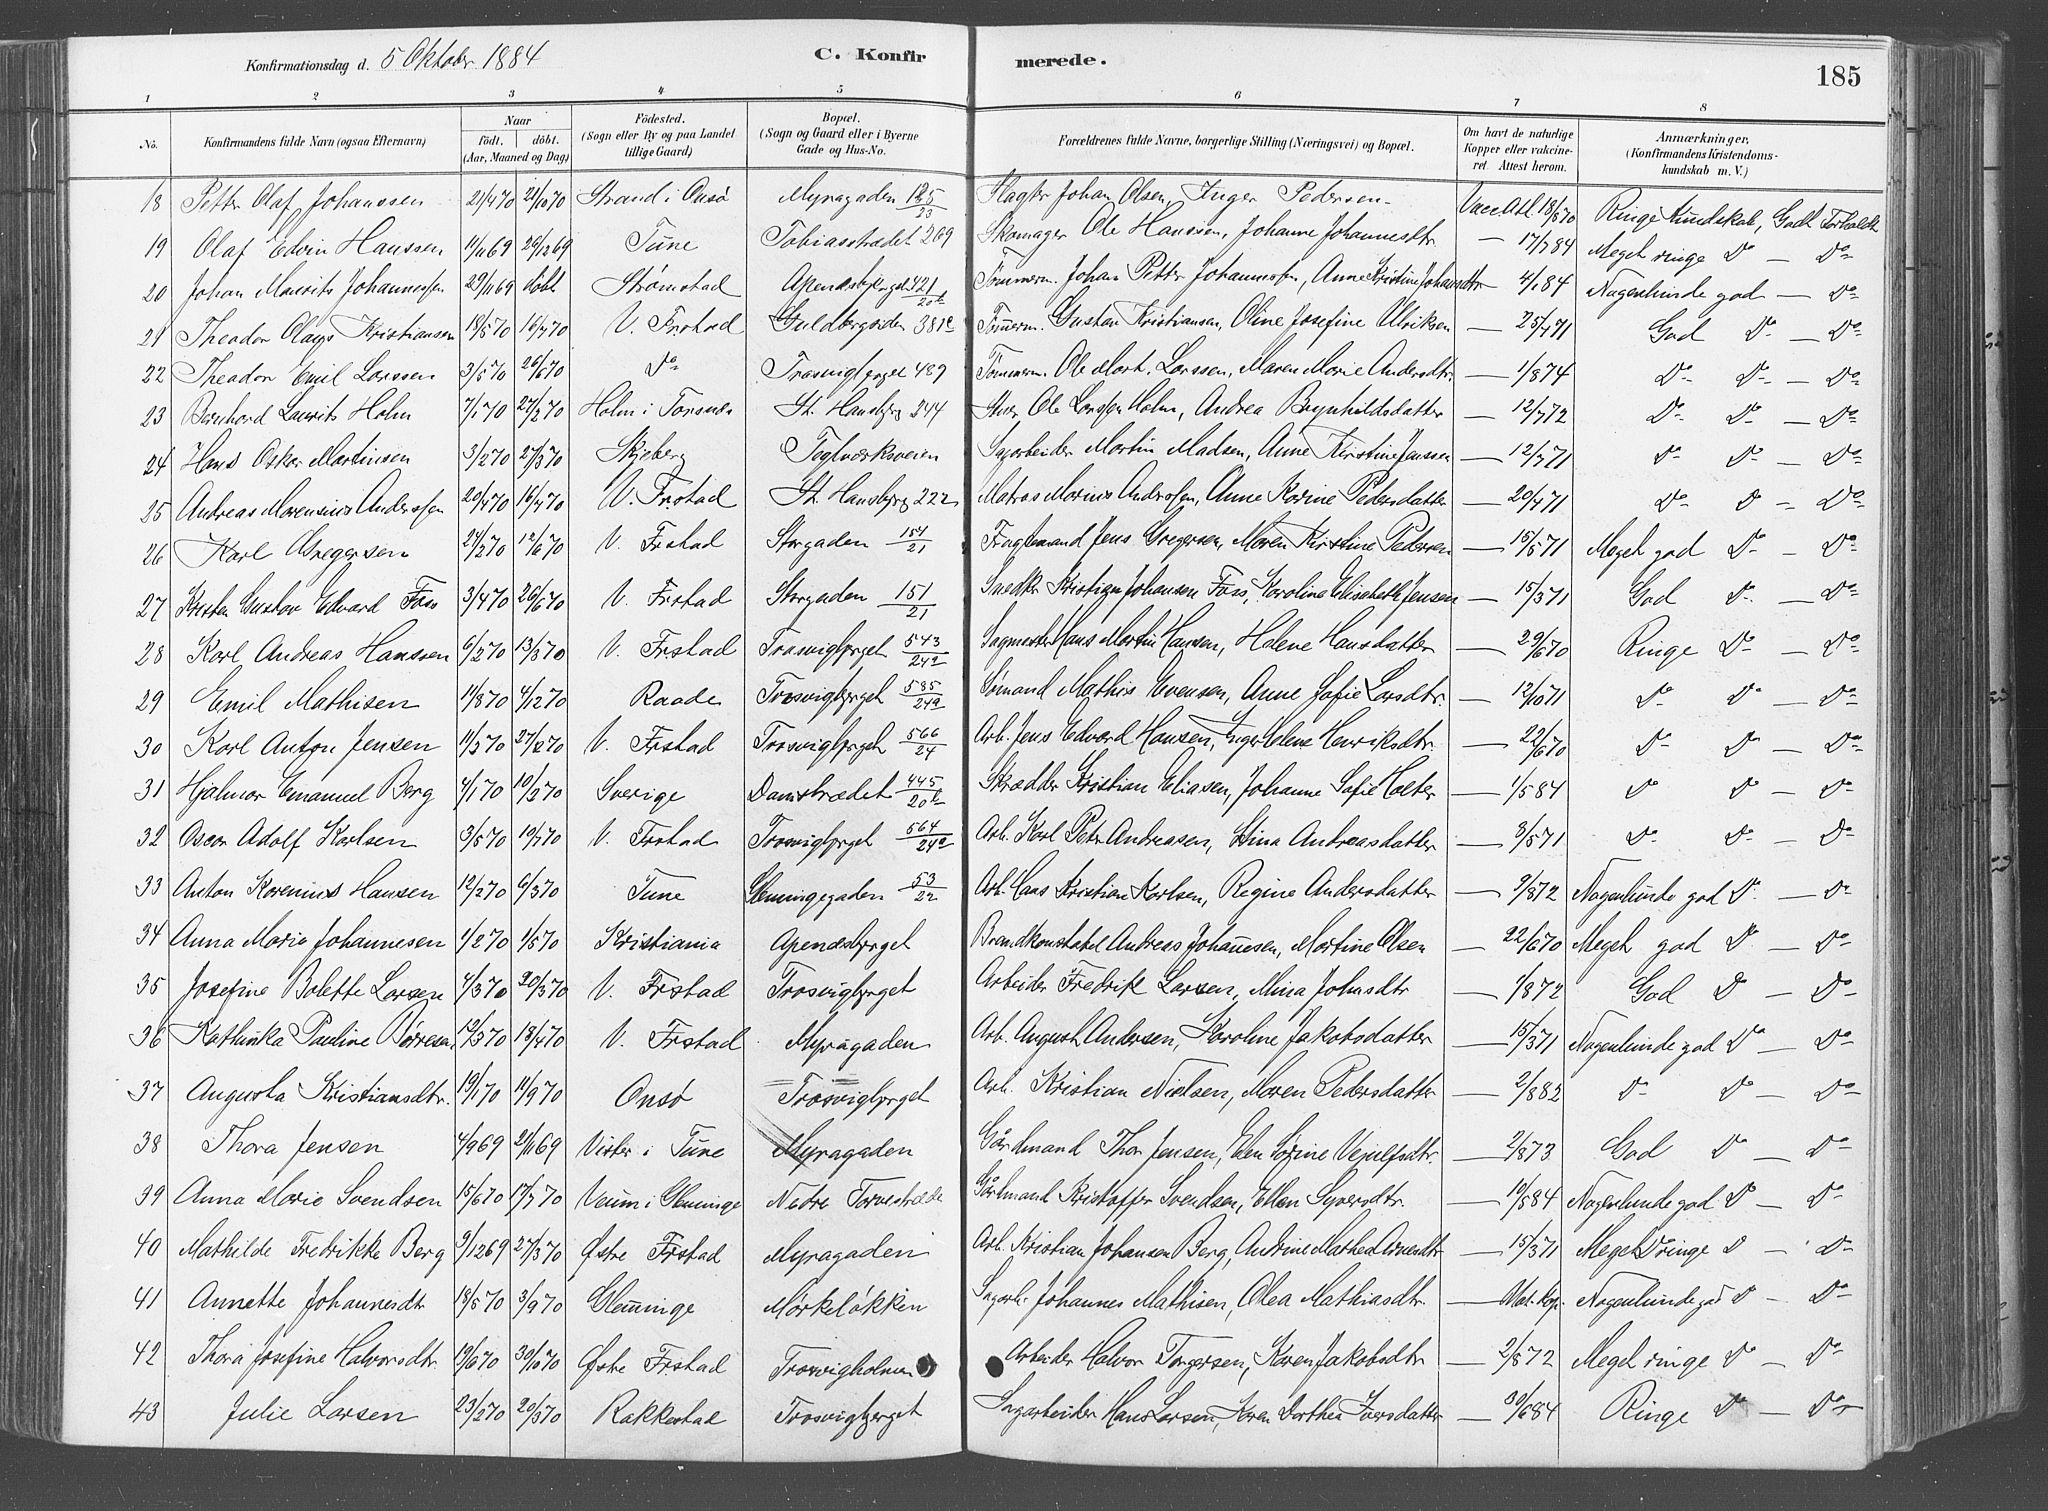 Konfirmationsdag d. 5 Oktober 1884 C. Konfir merede. 185
1 2 3 4 5 6 7 8
No. Konfirmandens fulde Navn (ogsaa Efternavn) Naar født. døbt. (Aar, Maaned og Dag) Födested. (Sogn eller By og paa Landet tillige Gaard) Bopæl. (Sogn og Gaard eller i Byerne Gade og Hus-No. Forældrenes fulde Navne, borgerlige Stilling (Næringsvei) og Bopæl. Om havt de naturlige Kopper eller vakcineret. Attest herom. Anmærkninger, (Konfirmandens Kristendomskundskab m. V.)
18 Petter Olaf Johanssen 21/4 70 21/10 70 Strand i Onsø Myragaden 125/23 Flagtr Johan Olsen, Inger Pedersen Vacc Att 18/6 70 Ringe Kundskab, Godt Forhold
19 Olaf Edvin Hanssen 11/11 69 26/12 69 Tune Tobiasstrædet 269 Skomager Ole Hanssen, Johanne Johannesdtr — 17/7 84 Meget ringe Do — Do
20 Johan Maurits Johannessen 29/11 69 døbt Strømstad Apenæsbjerget 421/20b Tømmerm. Johan Petter Johannessen, Anne Kristine Johansdtr 4/1 84 Nogenlunde god — Do
21 Theodor Olaus Kristiansen 18/5 70 16/7 70 V. Frstad Guldbergsiden 381c Tømerm. Gustav Kristiansen, Oline Josefine Ulriksen — 25/4 71 God Do — Do
22 Theodor Emil Larssen 3/5 70 26/6 70 Do Trosvigbjerget 489 Tømmerm. Ole Mart. Larssen, Maren Marie Andersdtr. — 1/8 74 Do Do — Do
23 Bernhard Laurits Holm 7/1 70 27/2 70 Holm i Torsnæs St. Hansbjerg 244 Stuer Ole Larssen Holm, Andrea Brynhildsdatter — 12/7 72 Do Do — Do
24 Hans Oskar Martinsen 3/2 70 27/3 70 Skjeberg Teglværksveien Sagarbeider Martin Madsen, Anne Kirstine Janssen — 12/7 71 Do Do — Do
25 Andreas Marensius Anderssen 20/4 70 16/4 70 V. Frstad St. Hansbjerg 222 Matros Marius Anderssen, Anne Karine Pedersdatter — 20/4 71 Do Do — Do
26 Karl Gregersen 27/2 70 12/6 70 V. Frstad Storgaden 154/21 Fragtemand Jens Gregersen, Maren Kirstine Pedersen — 15/5 71 Meget god Do — Do
27 Kristen Gustav Edvard Foss 3/4 70 26/6 70 V. Frstad Storgaden 151/21 Snedker Kristian Johansen Foss, Karoline Elisabeth Jensen — 15/3 71 God Do — Do
28 Karl Andreas Hanssen 6/2 70 13/3 70 V. Frstad Trosvigbjerget 543/24a Sagmester Hans Martin Hansen, Helene Hansdatter — 29/6 70 Ringe Do — Do
29 Emil Mathisen 11/8 70 4/12 70 Raade Trosvigbjerget 585/24a Sømand Mathis Evensen, Anne Sofie Larsdtr. — 12/10 71 Do Do — Do
30 Karl Anton Jensen 11/3 70 27/2 70 V. Frstad Trosvigbjerget 566/24 Arb. Jens Edvard Hansen, Inger Helene Henriksdtr. — 22/6 70 Do Do — Do
31 Hjalmar Emanuel Berg 4/1 70 10/2 70 Sverige Damstrædet 445/20b Skrædder Kristian Eliasen, Johanne Sofie Holter — 1/5 84 Do Do — Do
32 Oscar Adolf Karlsen 3/5 70 10/7 70 V. Frstad Trosvigbjerget 564/24a Arb. Karl Petr Andreasen, Stina Andreasdatter — 3/5 71 Do Do — Do
33 Anton Korenius Hansen 12/2 70 6/3 70 Tune Glemmingegaden 53/22 Arb. Hans Kristian Karlsen, Regine Andersdatter — 9/8 72 Nogenlunde god Do — Do
34 Anna Marie Johannesen 1/2 70 1/5 70 Kristiania Apenæsbjerget Brandkonstabel Andreas Johannesen, Martine Olsen — 22/6 70 Meget god Do — Do
35 Josefine Bolette Larsen 4/3 70 20/3 70 V. Frstad Trosvigbjerget Arbeider Fredrik Larsen, Mina Johnsdtr — 1/8 72 God Do — Do
36 Kathinka Pauline Børresen 12/3 70 18/4 70 V. Frstad Myragaden Arb. August Andersen, Karoline Jakobsdatter — 15/3 71 Nogenlunde god Do — Do
37 Augusta Kristiansdtr. 19/1 70 11/9 70 Onsø Trosvigbjerget Arb. Kristian Nielsen, Maren Pedersdatter — 2/8 82 Do Do — Do
38 Thora Jensen 4/9 69 21/11 69 Vister i Tune Myragaden Gårdmand Thor Jensen, Elen Sørine Vejulfsdtr. — 2/8 73 God Do — Do
39 Anna Marie Svendsen 15/6 70 17/7 70 Veum i Glemminge Nedre Torvestræde Gårdmand Kristoffer Svendsen, Ellen Syversdtr. — 10/5 84 Nogenlunde god Do — Do
40 Mathilde Fredrikke Berg 9/12 69 27/3 70 Østre Frstad Myragaden Arb. Kristian Johansen Berg, Andrine Mathea Arnesdtr — 15/3 71 Meget ringe Do — Do
41 Annette Johannesdtr 18/5 70 3/9 70 Glemminge Mørkeløkken Sagarb. Johannes Mathisen, Olea Mathiasdtr. — Nat. Kop. Nogenlunde god Do — Do
42 Thora Josefine Halvorsdtr 19/6 70 30/10 70 Østre Frstad Trosvigholmen Arbeider Halvor Torgersen, Karen Jakobsdtr — 2/8 72 Meget ringe Do — Do
43 Julie Larsen 23/2 70 20/3 70 Rakkestad Trosvigbjerget Sagarbeider Hans Larsen, Karen Dorthea Iversdatter — 30/6 84 Ringe Do — Do